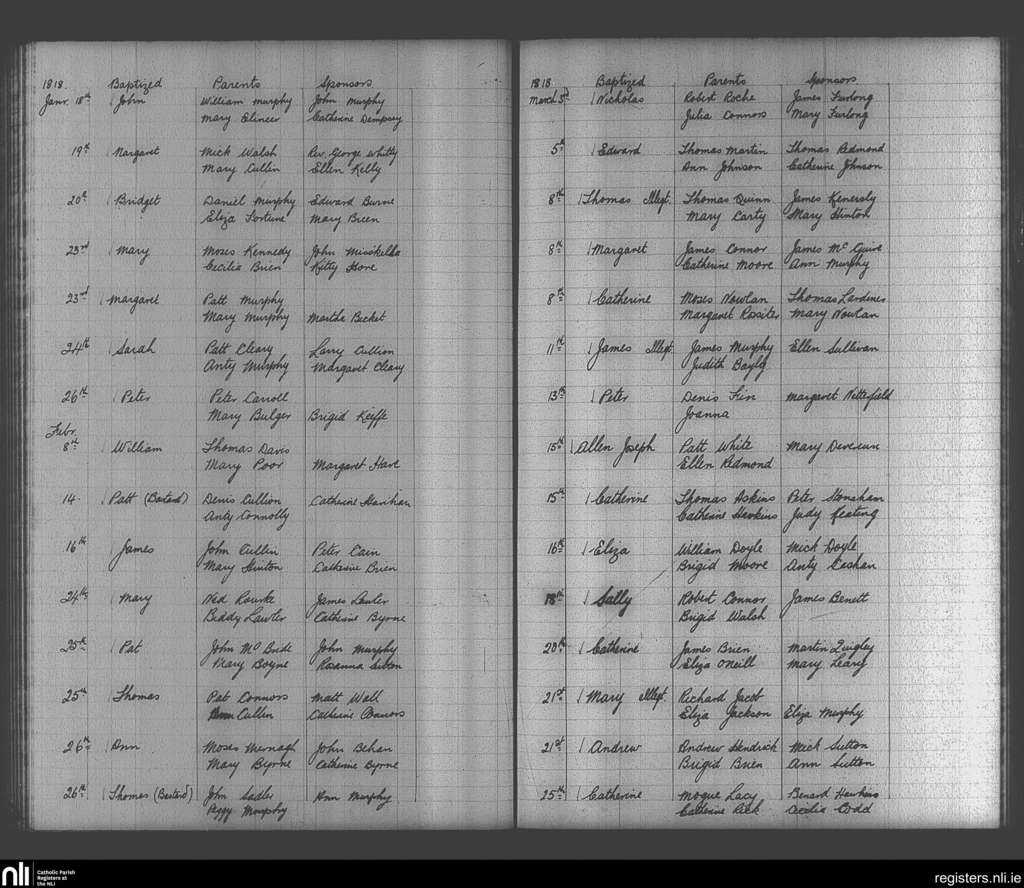 1818. Baptized Parents Sponsors
Janr. 18th John William Murphy John Murphy
Mary Elineer Catherine Dempsey
19th Margaret Mick Walsh Rev. George Whitty
Mary Cullin Ellen Kelly
20th Bridget Daniel Murphy Edward Burne
Eliza Fortune Mary Breen
23rd Mary Moses Kennedy John
Cecilia Brien Kitty Hore
23rd Margaret Patt Murphy
Mary Murphy Martha Becket
24th Sarah Patt Cleary Larry Cullion
Anty Murphy Margaret Cleary
26th Peter Peter Carroll
Mary Bulger Brigid Keiffe
Febr.
8th William Thomas Davis
Mary Poor Margaret Hare
14. Patt (Bastard) Denis Cullion Catherine
Anty Connolly
16th James John Cullin Peter Cain
Mary Hinton Catherine Brien
24th Mary Ned Rourke James Lawler
Biddy Lawler Catherine Byrne
25th Pat John McBride John Murphy
Mary Boyne Rosanna
25th Thomas Pat Connors Matt Wall
Cullen Catherine Connors
26th Ann Moses Mernagh John Behan
Mary Byrne Catherine Byrne
26th Thomas (Bastard) John Sadler Ann Murphy
Peggy Murphy
1818. Baptized Parents Sponsors
March 3rd Nicholas Robert Roche James Furlong
Julia Connors Mary Furlong
5th Edward Thomas Martin Thomas Redmond
Ann Johnson Catherine Johnson
8th Thomas Illegt. Thomas Quinn James
Mary Carty Mary Hinton
8th Margaret James Connor James McGuire
Catherine Moore Ann Murphy
8th Catherine Moses Nowlan Thomas
Margaret Rossiter Mary Nowlan
11th James Illegt. James Murphy Ellen Sullivan
Judith Bayly
13th Peter Denis Margaret Nettefield
Joanna
15th Allen Joseph Patt White Mary Devereux
Ellen Redmond
15th Catherine Thomas Askins Peter Stonehan
Catherine Hawkins Judy Keating
16th Eliza William Doyle Mick Doyle
Brigid Moore Anty Cashan
18th Sally Robert Connor James Benett
Brigid Walsh
20th Catherine James Brien Martin Quigley
Eliza ONeill Mary Leary
21st Mary Illegt. Richard Jacob
Eliza Jackson Eliza Murphy
21st Andrew Andrew Hendrick Mick Sutton
Brigid Brien Ann Sutton
25th Catherine Mogue Lacy Benard Hawkins
Catherine Cecilia Codd
nli
Catholic Parish
Registers at
the NLI
registers.nli.ie